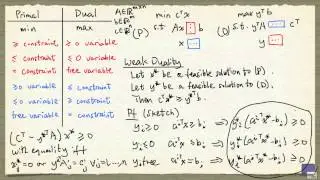 Primal Dual
min max
≥ constraint ≥ 0 variable
≤ constraint ≤ 0 variable
= constraint free variable
≥ 0 variable ≤ constraint
≤ 0 variable ≥ constraint
free variable = constraint
A∈ℝᵐˣⁿ
b∈ℝᵐ
c∈ℝⁿ
min cᵀx max yᵀb
(P) s.t. Ax ⋮ b (D) s.t. yᵀA ⋯ cᵀ
x ⋯ y ⋮
Weak Duality
Let x* be a feasible solution to (P).
Let y* be a feasible solution to (D).
Then cᵀx* ≥ y*ᵀb
Pf (sketch)
yᵢ ≥ 0 aⁱᵀx ≥ bᵢ ⇒ yᵢ*(aⁱᵀx*-bᵢ) ≥ 0
yᵢ ≤ 0 aⁱᵀx ≤ bᵢ ⇒ yᵢ*(aⁱᵀx*-bᵢ) ≥ 0
yᵢ free aⁱᵀx = bᵢ ⇒ yᵢ*(aⁱᵀx*-bᵢ) ≥ 0
(cᵀ - y*ᵀA) x* ≥ 0
with equality iff
xⱼ* = 0 or y*ᵀAⱼ = cⱼ ∀j=1,…,n